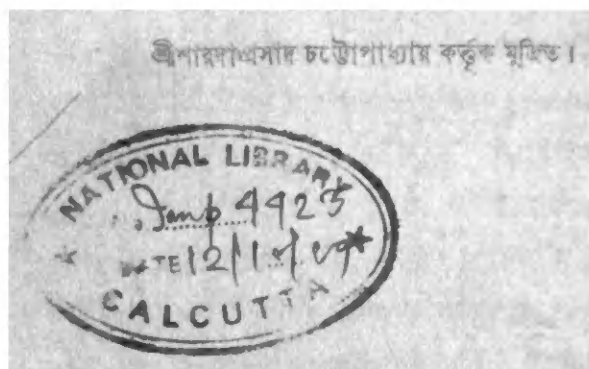 শ্রীশারদাপ্রসাদ চট্টোপাধ্যায় কর্ত্তৃক মুদ্রিত।
NATIONAL LIBRARY
4925
DATE
CALCUTTA